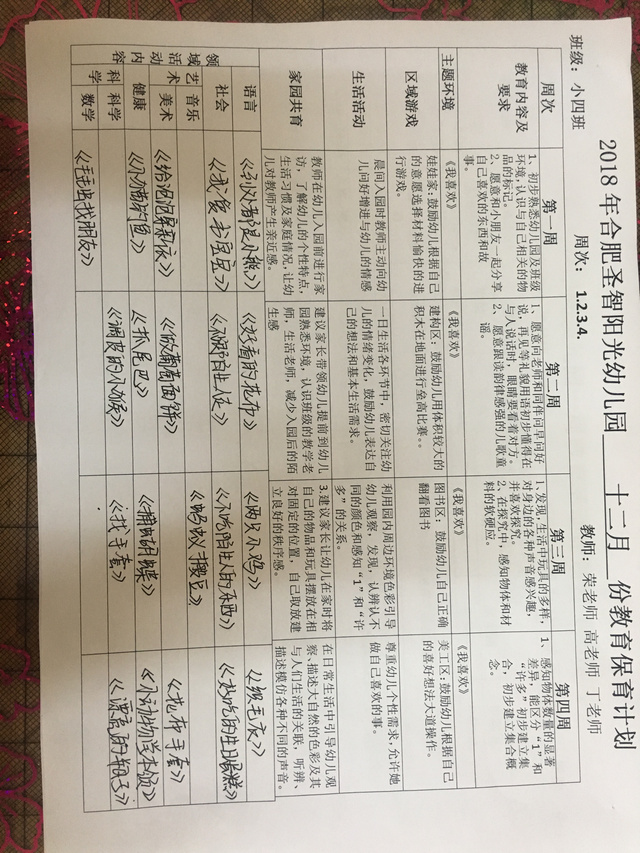 2018 年合肥圣智阳光幼儿园 十二月 份教育保育计划
班级：小四班 周次： 1.2.3.4. 教师：荣老师 高老师 丁老师
周次 第一周 第二周 第三周 第四周
教育内容及要求
1、初步熟悉幼儿园及班级
环境，认识与自己相关的物
品的标记。
2、愿意和小朋友一起分享
自己喜欢的东西和故
事。
1、愿意向老师和同伴问早问好
说，再见等礼貌用语初步懂得在
与人说话时，眼睛要看着对方。
2、愿意跟读韵律感强的儿歌童
谣。
1、发现 生活中玩具的多样，
对身边的各种声音感兴趣，
并喜欢探究。
2、在探究中，感知物体和材
料的软硬应。
1、感知物体数量的显著
差异，能区分“1”和
“许多”初步建立集
合，初步建立集合概
念。
主题环境 《我喜欢》 《我喜欢》 《我喜欢》 《我喜欢》
区域游戏
娃娃家：鼓励幼儿根据自己
的意愿选择材料愉快的进
行游戏。
建构区：鼓励幼儿用体积较大的
积木在地面进行垒高比赛。。
图书区：鼓励幼儿自己正确
翻看图书
美工区：鼓励幼儿根据自己
的喜好想法大道操作。
生活活动
晨间入园时教师主动向幼
儿问好增进与幼儿的情感
一日生活各环节中，密切关注幼
儿的情绪变化，鼓励幼儿表达自
己的想法和基本生活需求。
利用园内周边环境色彩引导
幼儿观察，发现，认辨认不
同的颜色和感知“1”和“许
多”的关系。
尊重幼儿个性需求，允许她
做自己喜欢的事。
家园共育
教师在幼儿入园前进行家
访，了解幼儿的个性特点，
生活习惯及家庭情况，让幼
儿对教师产生亲近感。
建议家长带领幼儿提前到幼儿
园熟悉环境，认识班级的教学老
师，生活老师，减少入园后的陌
生感
3.建议家长让幼儿在家时将
自己的物品和玩具摆放在相
对固定的位置，自己取放建
立良好的秩序感。
在日常生活中引导幼儿观
察、描述大自然的色彩及其
与人们生活的关联，听辨、
描述模仿各种不同的声音。
领域活动内容
语言 《到处都是小熊》 《好看的花布》 《两只小鸡》 《织毛衣》
社会 《我爱书宝宝》 《不跟陌生人走》 《不吃陌生人的东西》 《好吃的生日蛋糕》
艺术
音乐 《蚂蚁搬豆》
美术 《给泡泡果穿衣》 《做葡萄面饼》 《花布手套》
健康 《小猪吃包》 《抓尾巴》 《捕蝴蝶》 《小动物学本领》
科学
科学 《调皮的小猴》 《找手套》 《漂亮的鞋子》
数学 《毛毛虫找朋友》